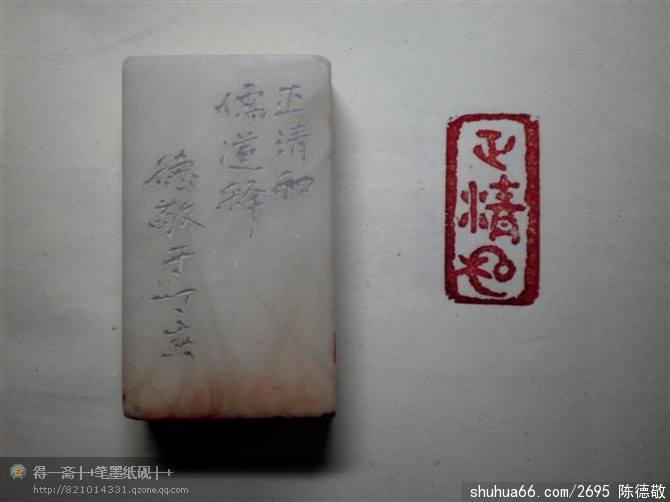 正清和
儒道释
德敬于丁亥
正清和
得一斋十+笔墨纸砚十+
http://821014331.qzone.qq.com
shuhua66.com/2695 陈德敬